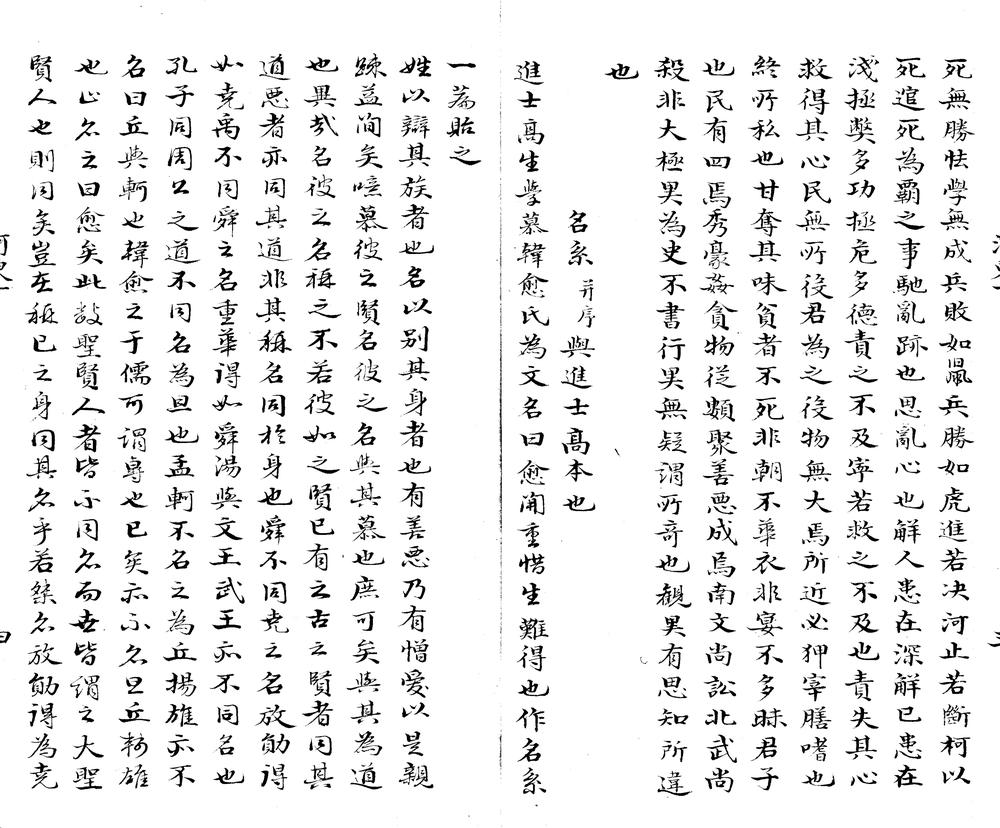 死無勝怯學無成兵敗如鼠兵勝如虎進若決河止若斷柯以
死逭死為霸之事馳亂跡也思亂心也解人患在深解已患在
淺拯弊多功拯危多德責之不及寧若救之不及也責失其心
救得其心民無所役君為之役物無大焉所近必狎宰膳嗜也
終所私也甘奪其味貧者不死非朝不華衣非宴不多眛君子
也民有四焉秀豪姦貪物從類聚善惡成焉南文尚訟北武尚
殺非大極男為史不書行男無疑謂所奇也觀男有思知所違
也
名系并序與進士高本也
進士高生學慕韓愈氏為文名曰愈開重惜生難得也作名系
一篇貽之
姓以辯其族者也名以别其身者也有善惡乃有憎愛以是親
踈益简矣噫慕彼之賢名彼之名與其慕也庶可矣與其為道
也異哉名彼之名稱之不若彼如之賢已有之古之賢者同其
道惡者亦同其道非其稱名同於身也舜不同堯之名放勛得
如堯禹不同舜之名重華得如舜湯與文王武王亦不同名也
孔子同周公之道不同名為旦也孟軻不名之為丘揚雄亦不
名曰丘與軻也韓愈之于儒可謂專也已矣亦不名旦丘軻雄
也止名之曰愈矣此數聖賢人者皆不同名而世皆謂之大聖
賢人也則同矣豈在稱已之身同其名乎若桀名放勛得為堯